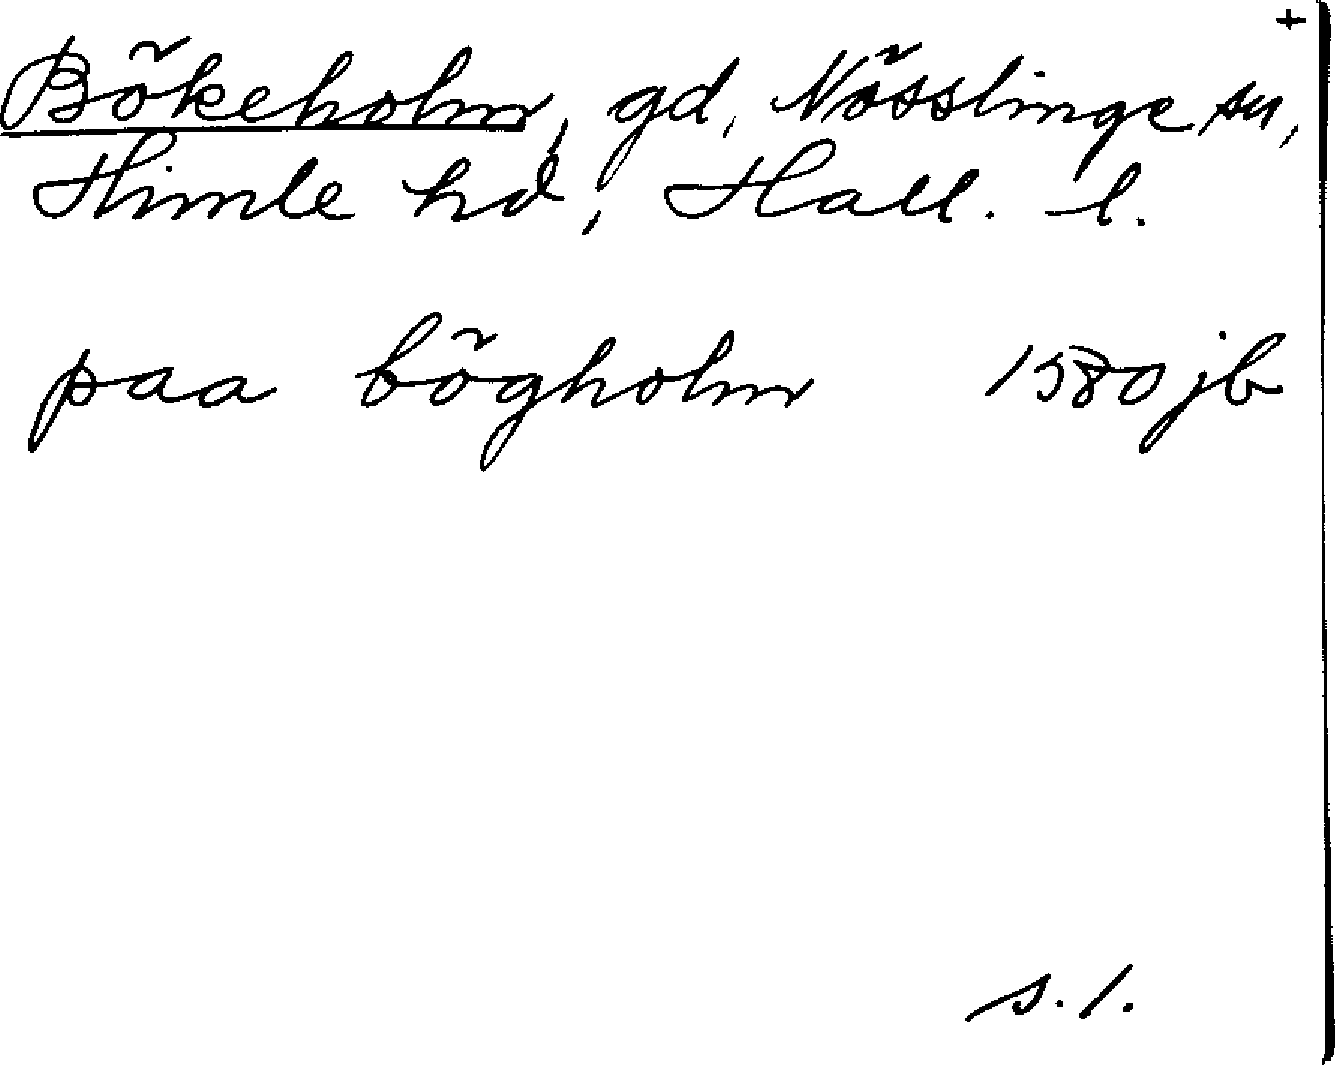 +
Bökeholm, gd, Nösslinge sn,
Himle hd, Hall. l.
paa bögholm 1580 jb
s. 1.